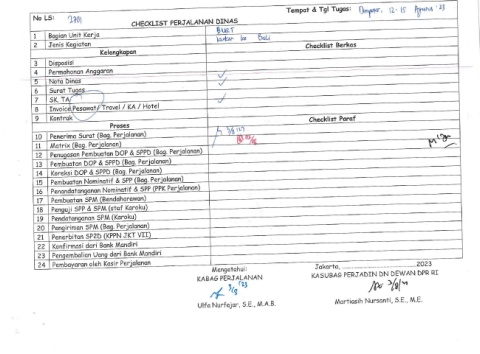 No LS: 2781
Tempat & Tgl Tugas: Denpasar, 12-15 Agustus 23
CHECKLIST PERJALANAN DINAS
1 Bagian Unit Kerja BURT
2 Jenis Kegiatan kunker ke Bali
Kelengkapan Checklist Berkas
3 Disposisi
4 Permohonan Anggaran ✓
5 Nota Dinas ✓
6 Surat Tugas
7 SK, TA ✓
8 Invoice Pesawat/ Travel / KA / Hotel
9 Kontrak
Proses Checklist Paraf
10 Penerima Surat (Bag. Perjalanan)
11 Matrix (Bag. Perjalanan)
12 Penugasan Pembuatan DOP & SPPD (Bag. Perjalanan)
13 Pembuatan DOP & SPPD (Bag. Perjalanan)
14 Koreksi DOP & SPPD (Bag. Perjalanan)
15 Pembuatan Nominatif & SPP (Bag. Perjalanan)
16 Penandatanganan Nominatif & SPP (PPK Perjalanan)
17 Pembuatan SPM (Bendaharawan)
18 Penguji SPP & SPM (staf Karoku)
19 Pendatanganan SPM (Karoku)
20 Pengiriman SPM (Bag. Perjalanan)
21 Penerbitan SP2D (KPPN JKT VII)
22 Konfirmasi dari Bank Mandiri
23 Pengembalian Uang dari Bank Mandiri
24 Pembayaran oleh Kasir Perjalanan
Mengetahui:
KABAG PERJALANAN
Ulfa Nurfajar, S.E., M.A.B.
Jakarta, ..............................2023
KASUBAG PERJADIN DN DEWAN DPR RI
Martiasih Nursanti, S.E., M.E.